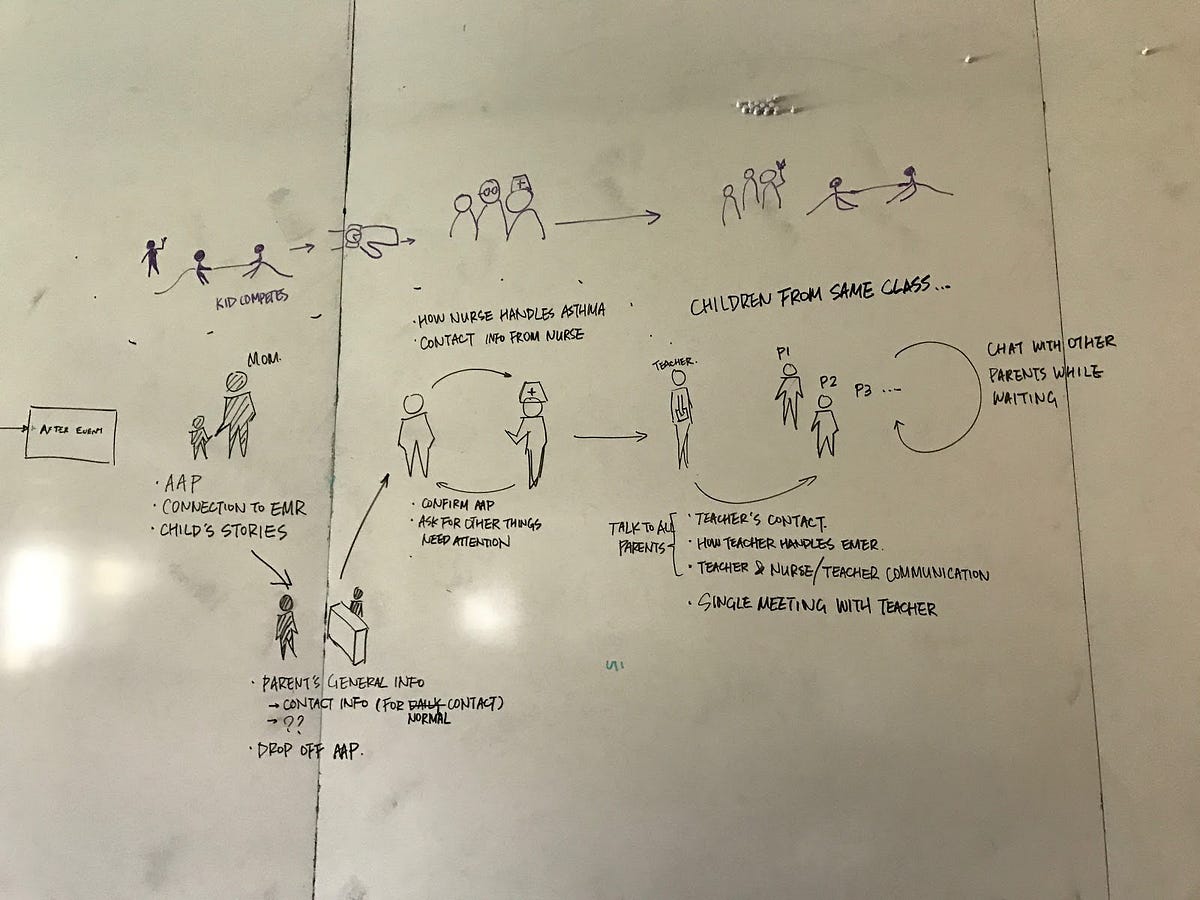 KID COMPETES
· HOW NURSE HANDLES ASTHMA
· CONTACT INFO FROM NURSE
CHILDREN FROM SAME CLASS...
AFTER EVENT
MOM.
· AAP
· CONNECTION TO EMR
· CHILD'S STORIES
· PARENT'S GENERAL INFO
→ CONTACT INFO (FOR DAILY CONTACT)
NORMAL
→ ??
· DROP OFF AAP.
· CONFIRM AAP
· ASK FOR OTHER THINGS
NEED ATTENTION
TEACHER.
P1
P2
P3 ...
CHAT WITH OTHER
PARENTS WHILE
WAITING
TALK TO ALL
PARENTS
· TEACHER'S CONTACT.
· HOW TEACHER HANDLES EMER.
· TEACHER & NURSE/TEACHER COMMUNICATION
· SINGLE MEETING WITH TEACHER